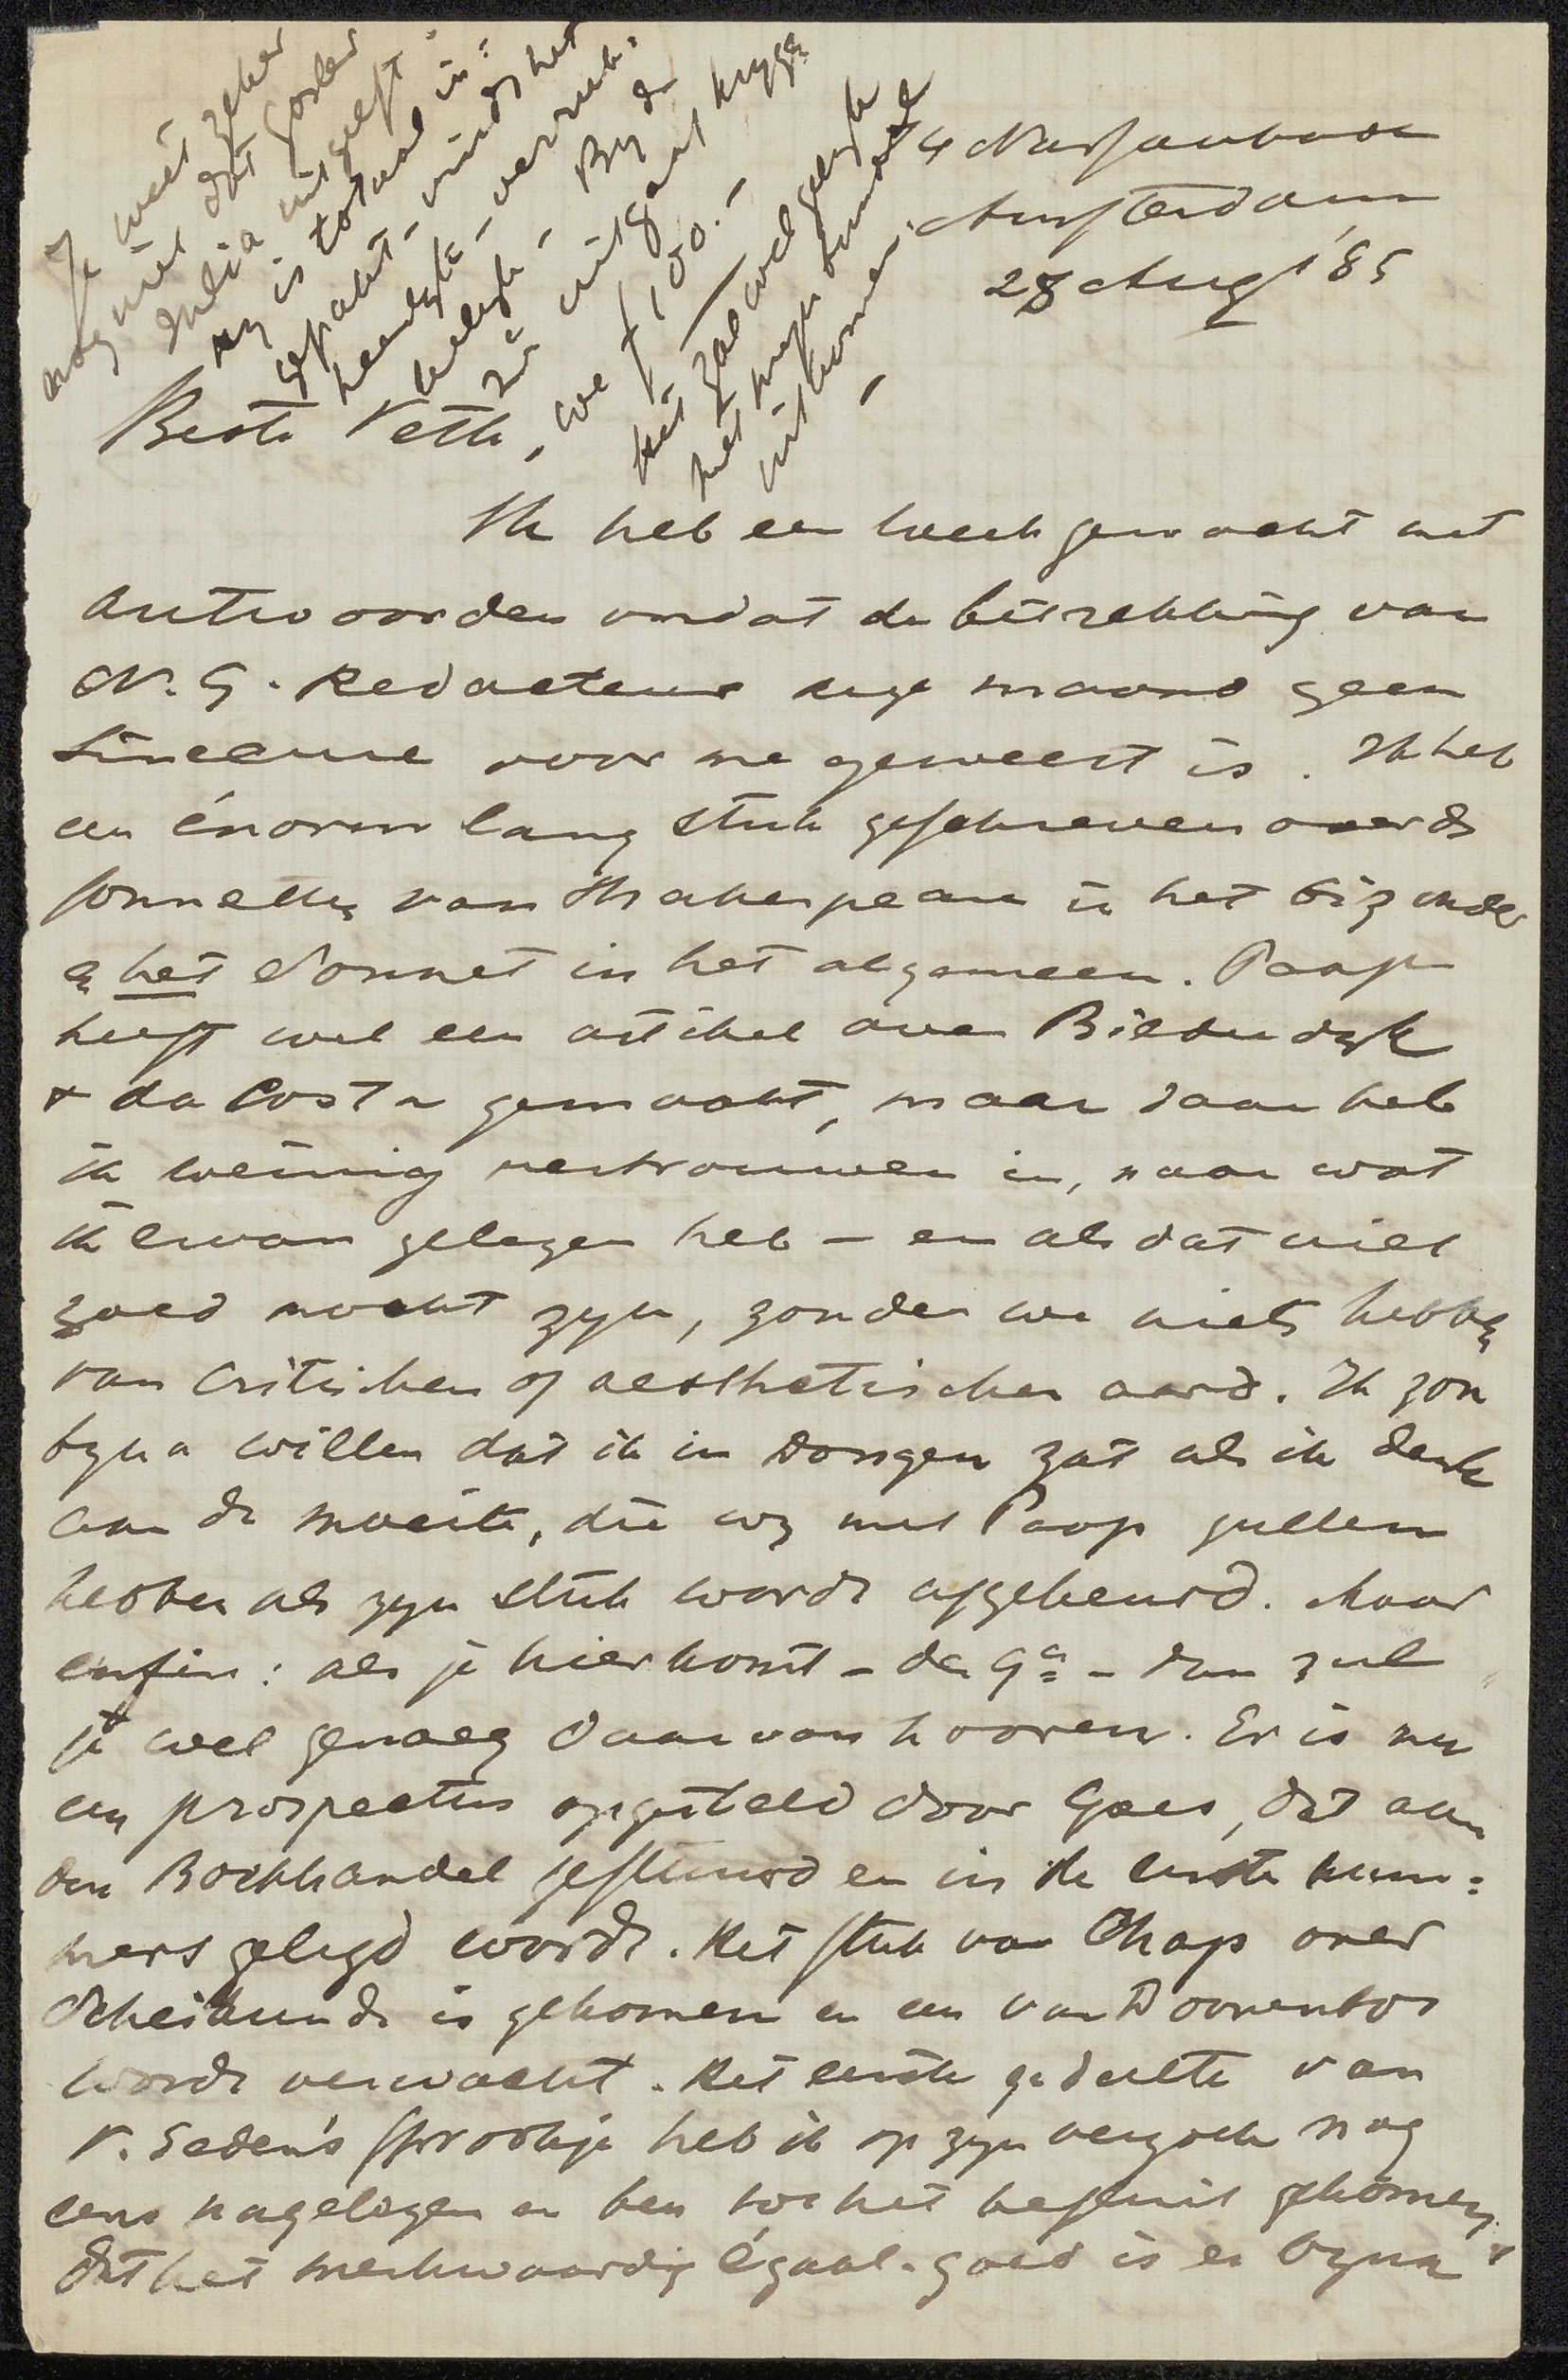 Je weet zeker
nog niet dat Gosler
Julia uitgeeft.
Hy is totaal in=
gepakt – vindt het
heerlyk – verruk=
kelyk – By de
2de uitgaaf krygen
we f 100.–
Het zal wel gelyk
met myn nummer
uitkomen. –
4 Nassaukade
Amsterdam,
28 Aug '85
Beste Veth,
Ik heb een week gewacht met
antwoorden omdat de betrekking van
N. G. Redacteur deze maand geen
sinecure voor me geweest is. Ik heb
een énorm lang stuk geschreven over de
sonnetten van Shakespeare in het bizonder
en het Sonnet in het algemeen. Paap
heeft wel een artikel over Bilderdyk
& da Costa gemaakt, maar daar heb
ik weinig vertrouwen in, naar wat
ik ervan gelezen heb – en als dat niet
goed mocht zyn, zouden we niets hebben
van critischen of aesthetischen aard. Ik zou
byna willen dat ik in Dongen zat als ik denk
aan de moeite, die wy met Paap zullen
hebben als zyn stuk wordt afgekeurd. Maar
enfin: als je hier komt – de 9e – dan zul
je wel genoeg daarvan hooren. Er is nu
een prospectus opgesteld door Goes, dat aan
den Boekhandel gestuurd en in de eerste num=
mers gelegd wordt. Het stuk van Chap over
Scheikunde is gekomen en een van Doorenbos
wordt verwacht. Het eerste gedeelte van
v. Eeden's sprookje heb ik op zyn verzoek nog
eens nagelezen en ben tot het besluit gekomen,
dat het merkwaardig égaal-goed is en byna